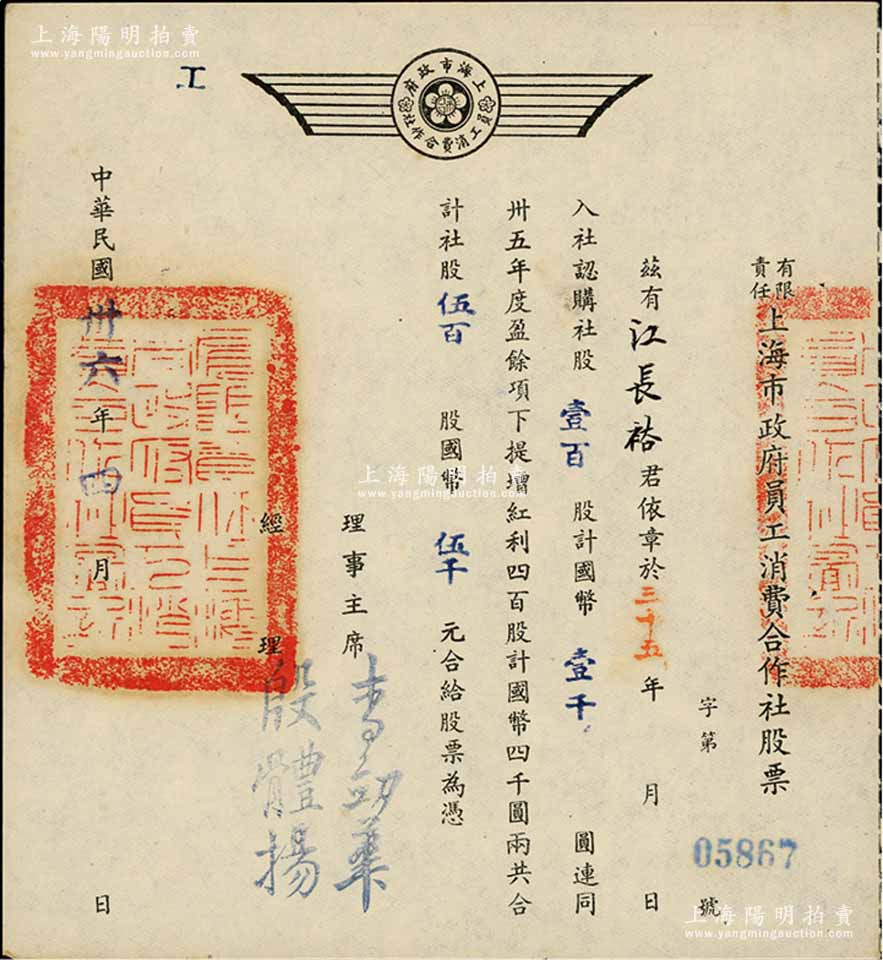 上海陽明拍賣
www.yangmingauction.com
工
上海市政府
員工消費合作社
有限責任上海市政府員工消費合作社股票
字第 05867 號
茲有江長裕君依章於三十五年 月 日
入社認購社股壹百股計國幣壹千圓連同
卅五年度盈餘項下提增紅利四百股計國幣四千圓兩共合
計社股伍百股國幣伍千元合給股票為憑
理事主席
經理 殷體揚
中華民國卅六年四月 日
上海陽明拍賣
www.yangmingauction.com
上海陽明拍賣
www.yangmingauction.com